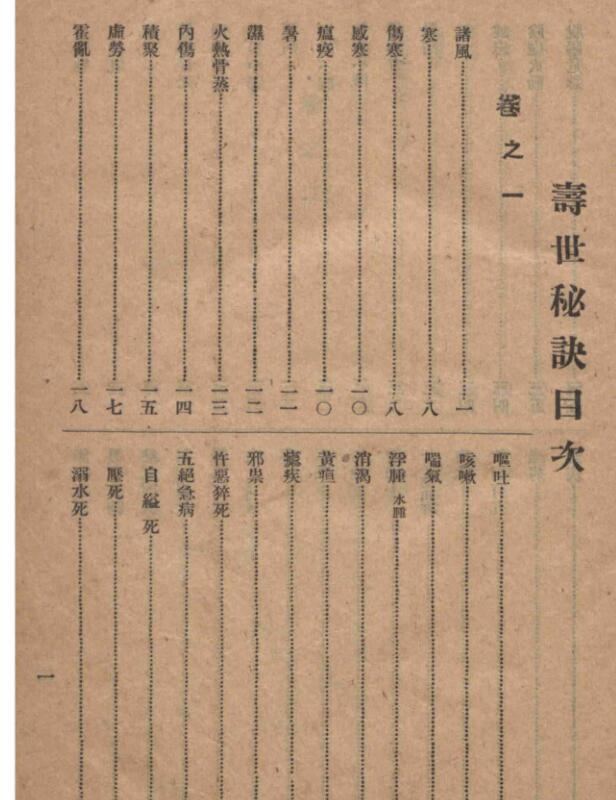 壽世秘訣目次
卷之一
諸風 一
寒 八
傷寒 八
感寒 一〇
瘟疫 一〇
暑 一一
濕 一二
火熱骨蒸 一三
內傷 一四
積聚 一五
虛勞 一七
霍亂 一八
嘔吐
咳嗽
喘氣
浮腫 水腫
消渴
黃疸
瘧疾
邪祟
忤惡猝死
五絕急病
自縊死
壓死
溺水死
一